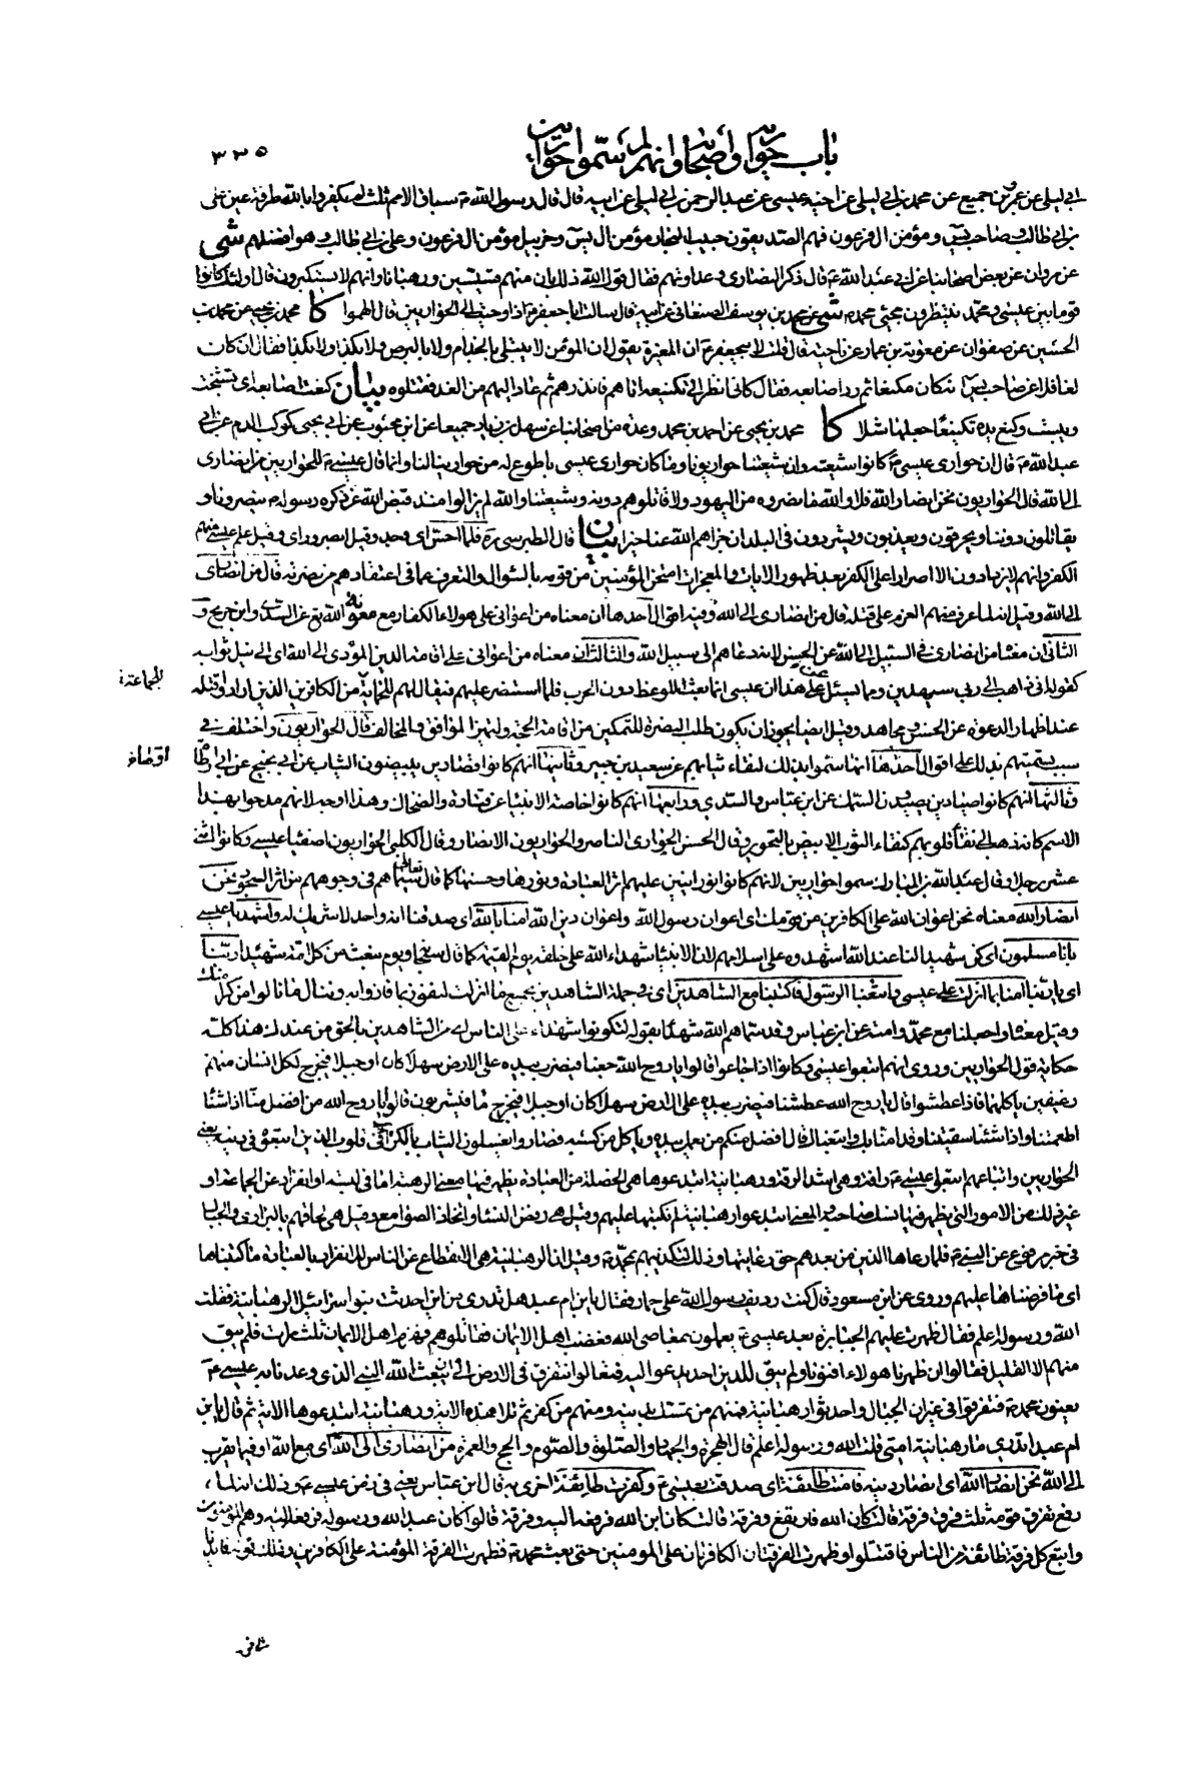 باب حواريه واصحابه وانهم لم سموا حواريين
٣٣٥
ابي ليلى عن عمرو بن جميع عن محمد بن ابي ليلى عن اخيه عيسى عن عبد الرحمن بن ابي ليلى عن ابيه قال قال رسول الله ص سباق الامم ثلث لم يكفروا بالله طرفة عين علي
بن ابي طالب وصاحب يس ومؤمن ال فرعون فهم الصديقون حبيب النجار مؤمن ال يس وحزبيل مؤمن ال فرعون وعلي بن ابي طالب وهو افضلهم شى
عن مروان عن بعض اصحابنا عن ابي عبد الله ع قال ذكر النصارى وعداوتهم فقال قول الله ذلك بان منهم قسيسين ورهبانا وانهم لا يستكبرون قال اولئك كانوا
قوما بين عيسى ومحمد ينتظرون مجيء محمد ص شى عن محمد بن يوسف الصنعاني عن ابيه قال سالت ابا جعفر ع اذ اوحيت الى الحواريين قال الهموا كا محمد بن يحيى عن محمد بن
الحسين عن صفوان عن معوية بن عمار عن ناجية قال قلت لابي جعفر ع ان المغيرة يقول ان المؤمن لا يبتلى بالجذام ولا بالبرص ولا بكذا ولا بكذا فقال ان كان
لغافلا عن صاحب يس انه كان مكنعا ثم رد اصابعه فقال كاني انظر الى تكنيعه اتاهم فانذرهم ثم عاد اليهم من الغد فقتلوه بيان كنعت اصابعه اي تشنجت
ويبست وكنع يده تكنيعا جعلها شلا كا محمد بن يحيى عن احمد بن محمد وعدة من اصحابنا عن سهل بن زياد جميعا عن ابن محبوب عن ابي يحيى كوكب الدم عن ابي
عبد الله ع قال ان حواري عيسى ع كانوا شيعته وان شيعتنا حواريونا وما كان حواري عيسى باطوع له من حوارينا لنا وانما قال عيسى ع للحواريين من انصاري
الى الله قال الحواريون نحن انصار الله فلا والله ما نصروه من اليهود ولا قاتلوهم دونه وشيعتنا والله لم يزالوا منذ قبض الله عز ذكره رسوله ص ينصرونا و
يقاتلون دوننا ويحرقون ويعذبون ويشردون في البلدان جزاهم الله عنا خيرا بيان قال الطبرسي ره فلما احس اي وجد وقيل ابصر وراى وقيل علم عيسى منهم
الكفر وانهم لا يزدادون الا اصرارا على الكفر بعد ظهور الايات والمعجزات امتحن المؤمنين من قومه بالسؤال والتعرف عما في اعتقادهم من نصرته قال من انصاري
الى الله وقيل انه لما عرف منهم العزم على قتله قال من انصاري الى الله وفيه اقوال احدها ان معناه من اعواني على هولاء الكفار مع معونة الله تع عن السدي وابن جريج و
الثاني ان معناه من انصاري في السبيل الى الله عن الحسن لانه دعاهم الى سبيل الله والثالث ان معناه من اعواني على اقامة الدين المؤدي الى الله اي الى نيل ثوابه
كقوله اني ذاهب الى ربي سيهدين ومما يسئل على هذا ان عيسى انما بعث للوعظ دون الحرب فلما استنصر عليهم فيقال لهم للحماية من الكافرين الذين ارادوا قتله
عند اظهار الدعوة عن الحسن ومجاهد وقيل ايضا يجوز ان يكون طلب النصرة للتمكين من اقامة الحجة ولتميز الموافق والمخالف قال الحواريون واختلف في
سبب تسميتهم بذلك على اقوال احدها انما سموا بذلك لنقاء ثيابهم عن سعيد بن جبير وثانيها انهم كانوا قصارين يبيضون الثياب عن ابي نجيح عن ابي ارطاة
وثالثها انهم كانوا صيادين يصيدون السمك عن ابن عباس والسدي ورابعها انهم كانوا خاصة الانبياء عن قتادة والضحاك وهذا اوجه لانهم مدحوا بهذا
الاسم كانه ذهب الى نقاء قلوبهم كنقاء الثوب الابيض بالتحوير وقال الحسن الحواري الناصر والحواريون الانصار وقال الكلبي الحواريون اصفياء عيسى وكانوا اثني
عشر رجلا وقال عبد الله بن المبارك سموا حواريين لانهم كانوا نورانيين عليهم اثر العبادة ونورها وحسنها كما قال تعالى سيماهم في وجوههم من اثر السجود نحن
انصار الله معناه نحن اعوان الله على الكافرين من قومك اي اعوان رسول الله واعوان دين الله امنا بالله اي صدقنا انه واحد لا شريك له واشهد يا عيسى
بانا مسلمون اي كن شهيدا لنا عند الله اشهدوه على اسلامهم لان الانبياء شهداء الله على خلقه يوم القيمة كما قال سبحانه ويوم نبعث من كل امة شهيدا ربنا
اي يا ربنا امنا بما انزلت على عيسى واتبعنا الرسول فاكتبنا مع الشاهدين اي في جملة الشاهدين بجميع ما انزلت لنفوز بما فازوا به وننال ما نالوا من كرامتك
وقيل معناه واجعلنا مع محمد وامته عن ابن عباس وقد سماهم الله شهداء بقوله لتكونوا شهداء على الناس اي من الشاهدين بالحق من عندك هذا كله
حكاية قول الحواريين وروى انهم اتبعوا عيسى وكانوا اذا جاعوا قالوا يا روح الله جعنا فيضرب بيده على الارض سهلا كان او جبلا فيخرج لكل انسان منهم
رغيفين ياكلهما فاذا عطشوا قالوا يا روح الله عطشنا فيضرب بيده على الارض سهلا كان او جبلا فيخرج ماء فيشربون قالوا يا روح الله من افضل منا اذا شئنا
اطعمتنا واذا شئنا سقيتنا وقد امنا بك واتبعناك قال افضل منكم من يعمل بيده وياكل من كسبه فصاروا يغسلون الثياب بالكراء في قلوب الذين اتبعوه في دينه يعني
الحواريين واتباعهم اتبعوا عيسى ع رافة وهي اشد الرقة ورهبانية ابتدعوها هي الخصلة من العبادة يظهر فيها معنى الرهبة اما في لبسه او انفراد عن الجماعة او
غير ذلك من الامور التي يظهر فيها نسك صاحبه والمعنى ابتدعوا رهبانية لم نكتبها عليهم وقيل هي رفض النساء واتخاذ الصوامع وقيل هي لحاقهم بالبراري والجبال
في خبر مرفوع عن النبي ص فلما رعاها الذين من بعدهم حق رعايتها وذلك لتكذيبهم بمحمد ص وقيل ان الرهبانية هي الانقطاع عن الناس للانفراد بالعبادة ما كتبناها
اي ما فرضناها عليهم وروى عن ابن مسعود قال كنت رديف رسول الله على حمار فقال يا بن ام عبد هل تدري من اين احدثت بنو اسرائيل الرهبانية فقلت
الله ورسوله اعلم فقال ظهرت عليهم الجبابرة بعد عيسى ع يعملون بمعاصي الله فغضب اهل الايمان فقاتلوهم فهزم اهل الايمان ثلث مرات فلم يبق
منهم الا القليل فقالوا ان ظهرنا هولاء افنونا ولم يبق للدين احد يدعو اليه فتعالوا نتفرق في الارض الى ان يبعث الله النبي الذي وعدنا به عيسى ع
يعنون محمد ص فتفرقوا في غيران الجبال واحدثوا رهبانية فمنهم من تمسك بدينه ومنهم من كفر ثم تلا هذه الاية ورهبانية ابتدعوها الاية ثم قال يا بن
ام عبد اتدري ما رهبانية امتي قلت الله ورسوله اعلم قال الهجرة والجهاد والصلوة والصوم والحج والعمرة من انصاري الى الله اي مع الله او فيما يقرب
الى الله نحن انصار الله اي انصار دينه فامنت طائفة اي صدقت بعيسى ع وكفرت طائفة اخرى به قال ابن عباس يعني في زمن عيسى ع وذلك انه لما
رفع تفرق قومه ثلث فرق فرقة قالت كان الله فارتفع وفرقة قالت كان ابن الله فرفعه اليه وفرقة قالوا كان عبد الله ورسوله فرفعه اليه وهم المؤمنون
واتبع كل فرقة طائفة من الناس فاقتتلوا وظهرت الفرقتان الكافرتان على المومنين حتى بعث محمد ص فظهرت الفرقة المؤمنة على الكافرين وذلك قوله فايدنا